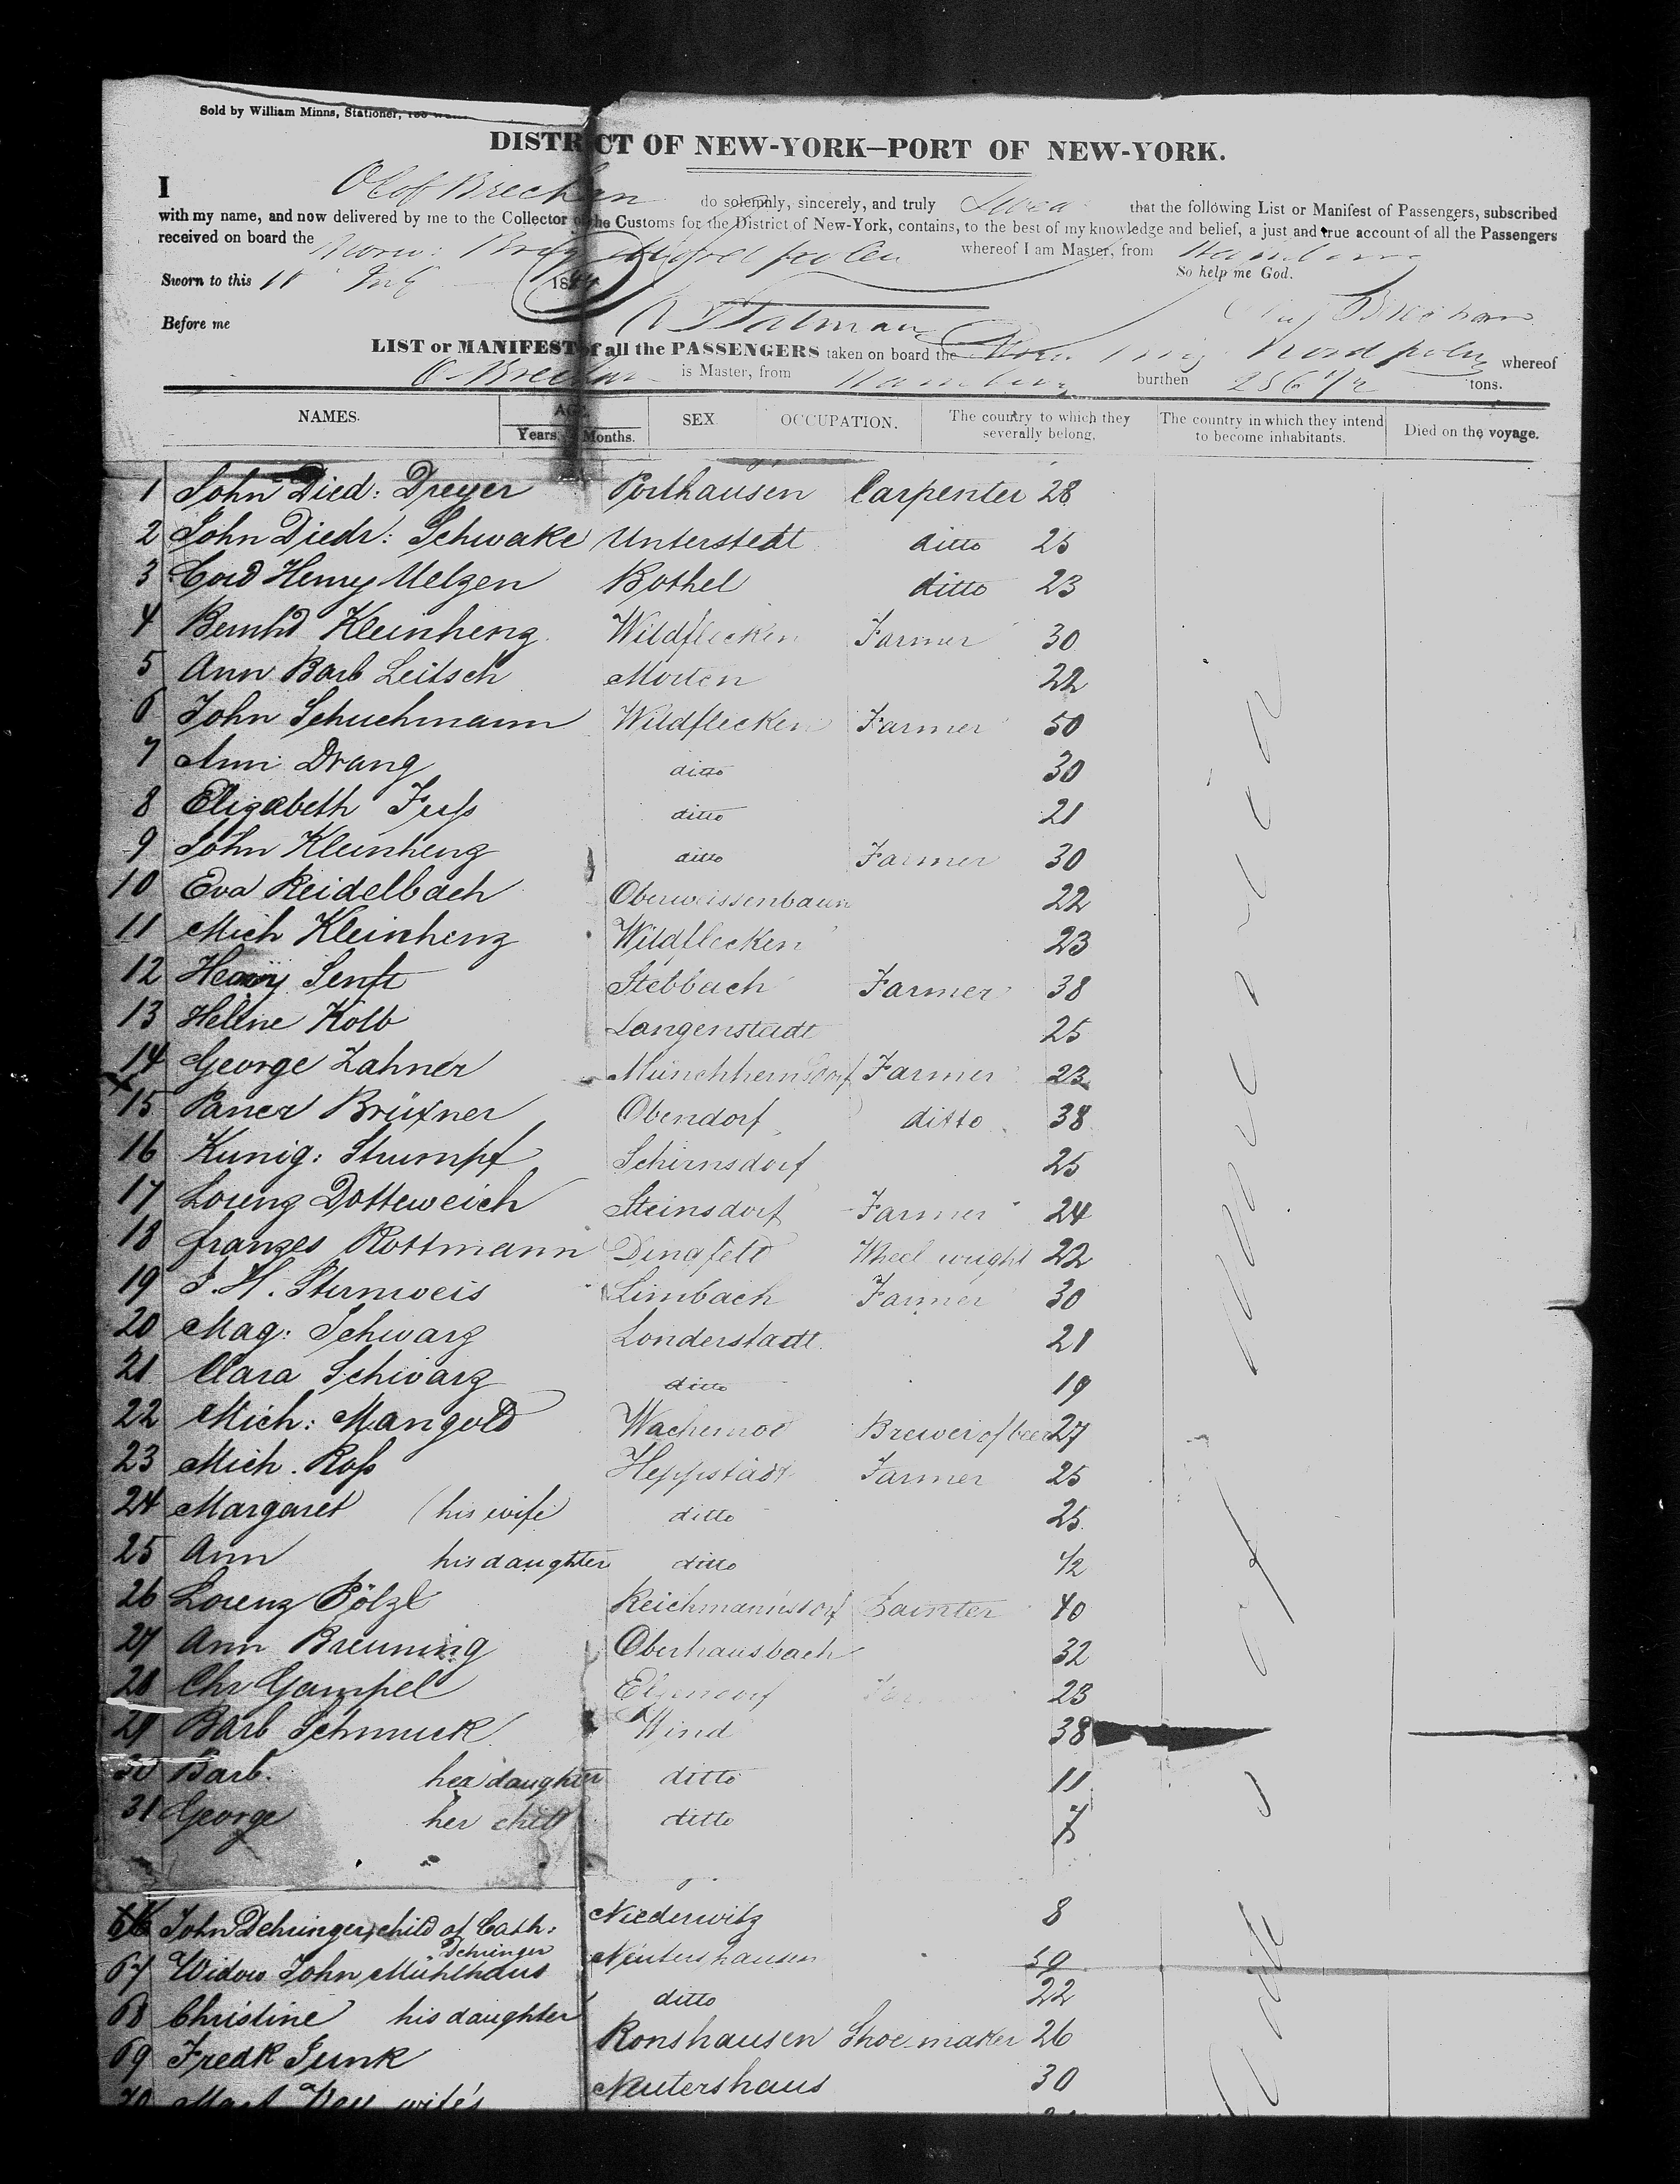 Sold by William Minns, Stationer,
DISTRICT OF NEW-YORK—PORT OF NEW-YORK.
I Olof Brechan do solemnly, sincerely, and truly Swear that the following List or Manifest of Passengers, subscribed
with my name, and now delivered by me to the Collector of the Customs for the District of New-York, contains, to the best of my knowledge and belief, a just and true account of all the Passengers
received on board the Norw: Brig whereof I am Master, from Hamburg
Sworn to this 18 So help me God.
Before me
LIST or MANIFEST of all the PASSENGERS taken on board the Norw. Brig Nordpolen whereof
O. Brechan is Master, from Hamburg burthen 256 1/2 tons.
NAMES. AGE. SEX. OCCUPATION. The country to which they severally belong. The country in which they intend to become inhabitants. Died on the voyage.
Years. Months.
1 John Died: Dreyer Posthausen Carpenter 28
2 John Diedr: Schwake Unterstedt ditto 25
3 Cord Henry Uelzen Bothel ditto 23
4 Bernhd Kleinhenz Wildflecken Farmer 30
5 Ann Barb Leitsch Morten 22
6 John Schuchmann Wildflecken Farmer 50
7 Ann Drang ditto 30
8 Elizabeth Fuß ditto 21
9 John Kleinhenz ditto Farmer 30
10 Eva Reidelbach Oberweissenbaum 22
11 Mich Kleinhenz Wildflecken 23
12 Henry Senft Stebbach Farmer 38
13 Helene Kolb Langenstadt 25
14 George Zahner Farmer 23
15 Brüxner Obendorf ditto 38
16 Kunig: Stumpf Schirnsdorf 25
17 Lorenz Dotteweich Steinsdorf Farmer 24
18 Franzes Rottmann Dingfeld Wheel wright 22
19 J. H. Sternweis Limbach Farmer 30
20 Mag: Schwarz Londerstadt 21
21 Clara Schwarz ditto 19
22 Mich: Mangold Brewer of beer 27
23 Mich. Roß Heppstädt Farmer 25
24 Margaret (his wife ditto 25
25 Ann his daughter ditto 1/2
26 Lorenz Pölzl Reichmannsdorf Painter 40
27 Ann Breuning Oberhausbach 32
28 Chr Gampel 23
29 Barb Schmuck Wind 38
30 Barb. her daughter ditto 11
31 George her child ditto 7
66 John Dehringer, child of Cath: Dehringer Niederwitz 8
67 Widow John Mühlhaus Neutershausen 59
68 Christine his daughter ditto 22
69 Fredk Junk Ronshausen Shoemaker 26
70 wife's Neutershaus 30